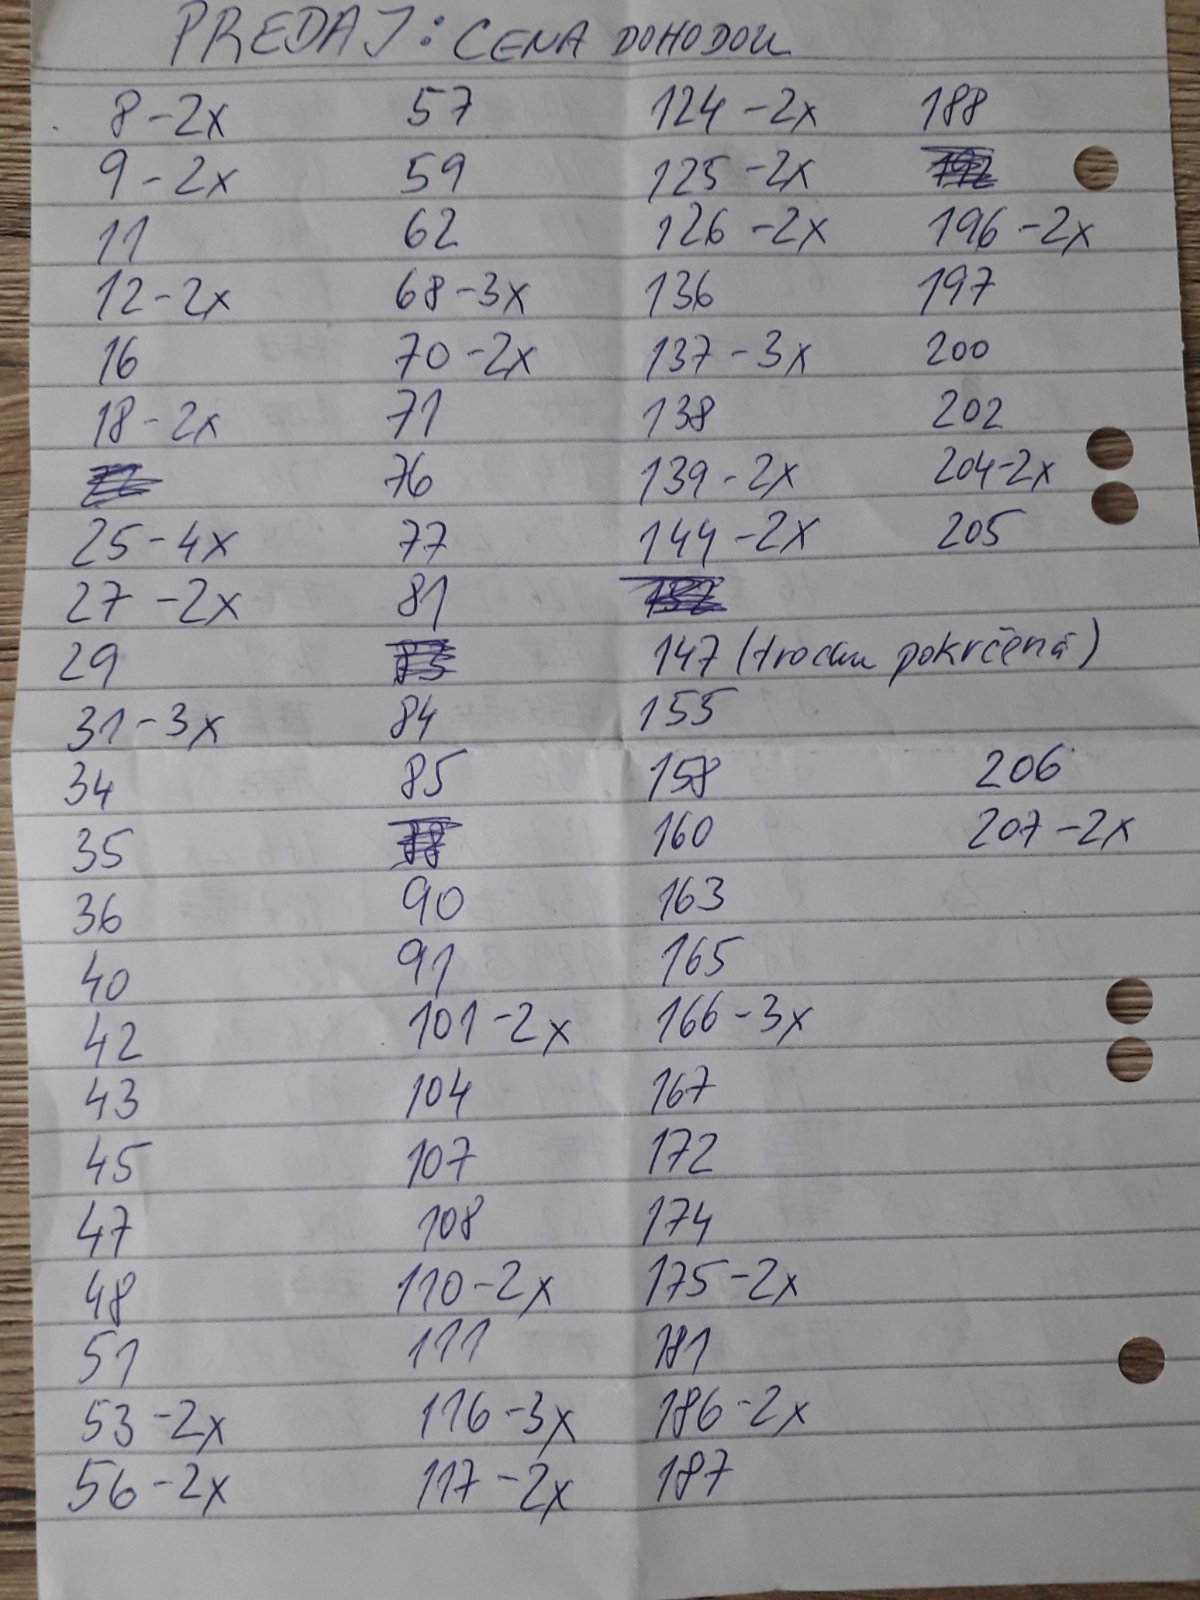 PREDAJ: CENA DOHODOU
8 - 2x
9 - 2x
11
12 - 2x
16
18 - 2x
25 - 4x
27 - 2x
29
31 - 3x
34
35
36
40
42
43
45
47
48
51
53 - 2x
56 - 2x
57
59
62
68 - 3x
70 - 2x
71
76
77
81
84
85
90
91
101 - 2x
104
107
108
110 - 2x
111
116 - 3x
117 - 2x
124 - 2x
125 - 2x
126 - 2x
136
137 - 3x
138
139 - 2x
144 - 2x
147 (trochu pokrčená)
155
158
160
163
165
166 - 3x
167
172
174
175 - 2x
181
186 - 2x
187
188
196 - 2x
197
200
202
204 - 2x
205
206
207 - 2x